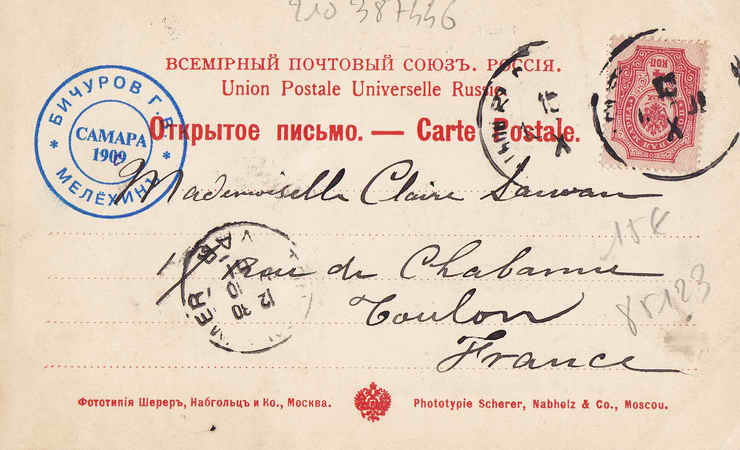 210 387446
ВСЕМІРНЫЙ ПОЧТОВЫЙ СОЮЗЪ. РОССІЯ.
Union Postale Universelle Russie
Открытое письмо. — Carte Postale.
БИЧУРОВ Г.В
САМАРА
1909
МЕЛЁХИНЪ
КОП
Mademoiselle Claire
Rue de Chabannes
Toulon
France
15€
85123
12
10
MER
Фототипія Шереръ, Набгольцъ и Ко., Москва.
Phototypie Scherer, Nabholz & Co., Moscou.